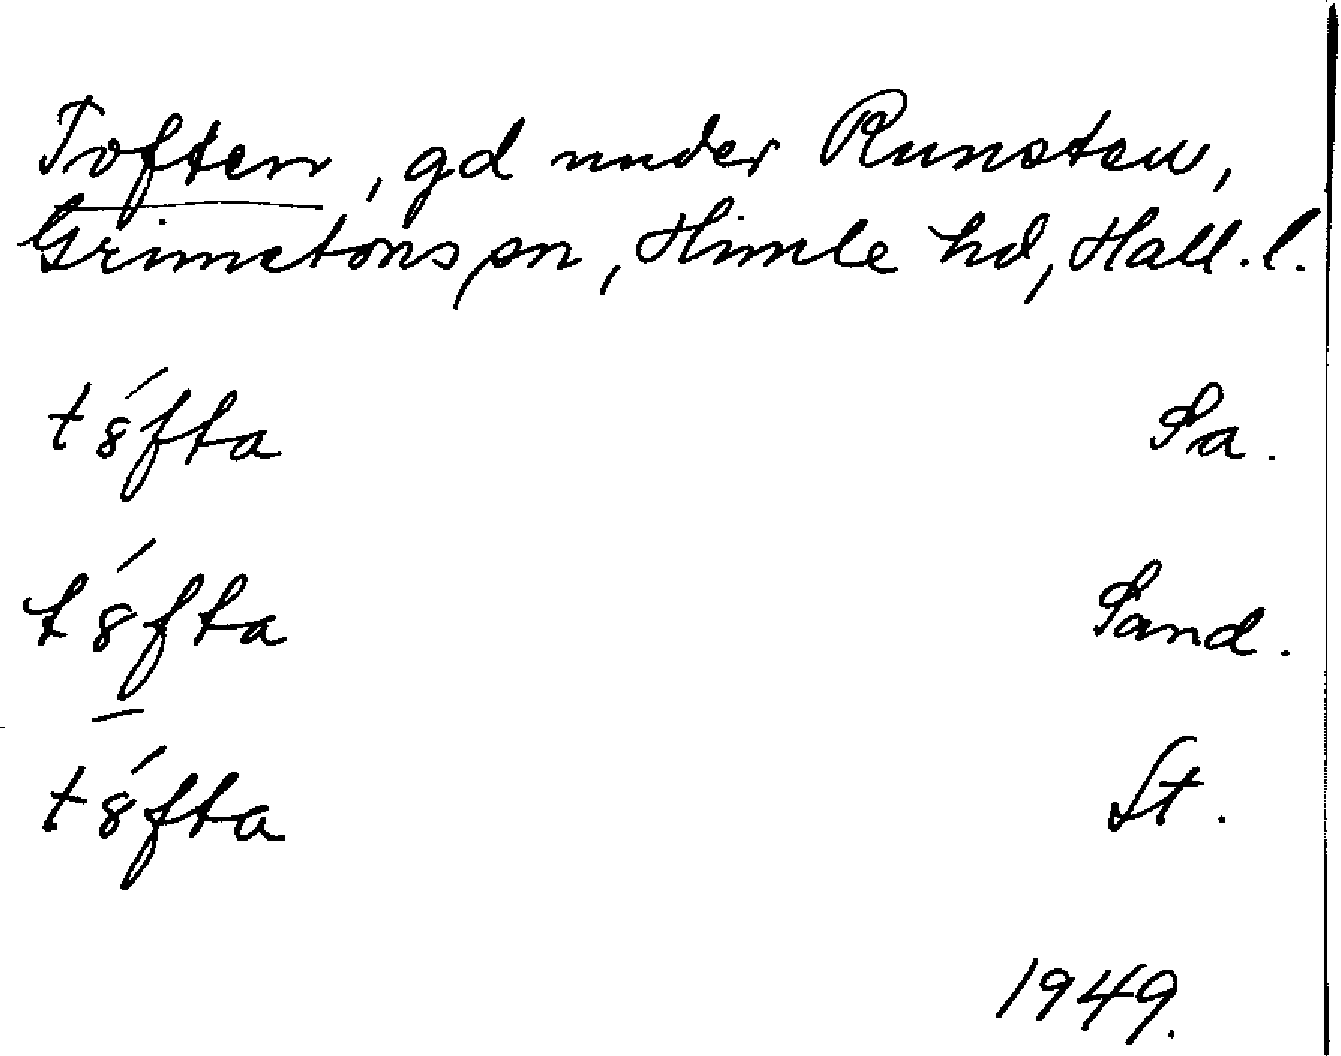 Toften, gd under Runsten,
Grimetons sn, Himle hd, Hall. l.
t8́fta Sa.
t8́fta Sand.
t8́fta St.
1949.